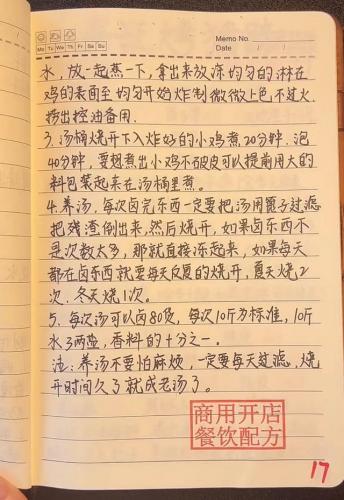 Mo Tu We Th Fr Sa Su
Memo No.
Date / /
水，放一起蒸一下，拿出来放凉均匀的淋在
鸡的表面至均匀开始炸制微微上色，不过火.
捞出控油备用.
3. 汤桶烧开下入炸好的小鸡煮20分钟. 泡
40分钟，要想煮出小鸡不破皮可以提前用大的
料包装起来在汤桶里煮。
4. 养汤. 每次卤完东西一定要把汤用篦子过滤
把残渣倒出来，然后烧开，如果卤东西不
是次数太多，那就直接冻起来，如果每天
都在卤东西就要每天反复的烧开，夏天烧2
次. 冬天烧1次。
5、每次汤可以卤80货，每次10斤为标准，10斤
水3两盐，香料的十分之一。
注：养汤不要怕麻烦，一定要每天过滤，烧
开时间久了就成老汤了。
商用开店
餐饮配方
17